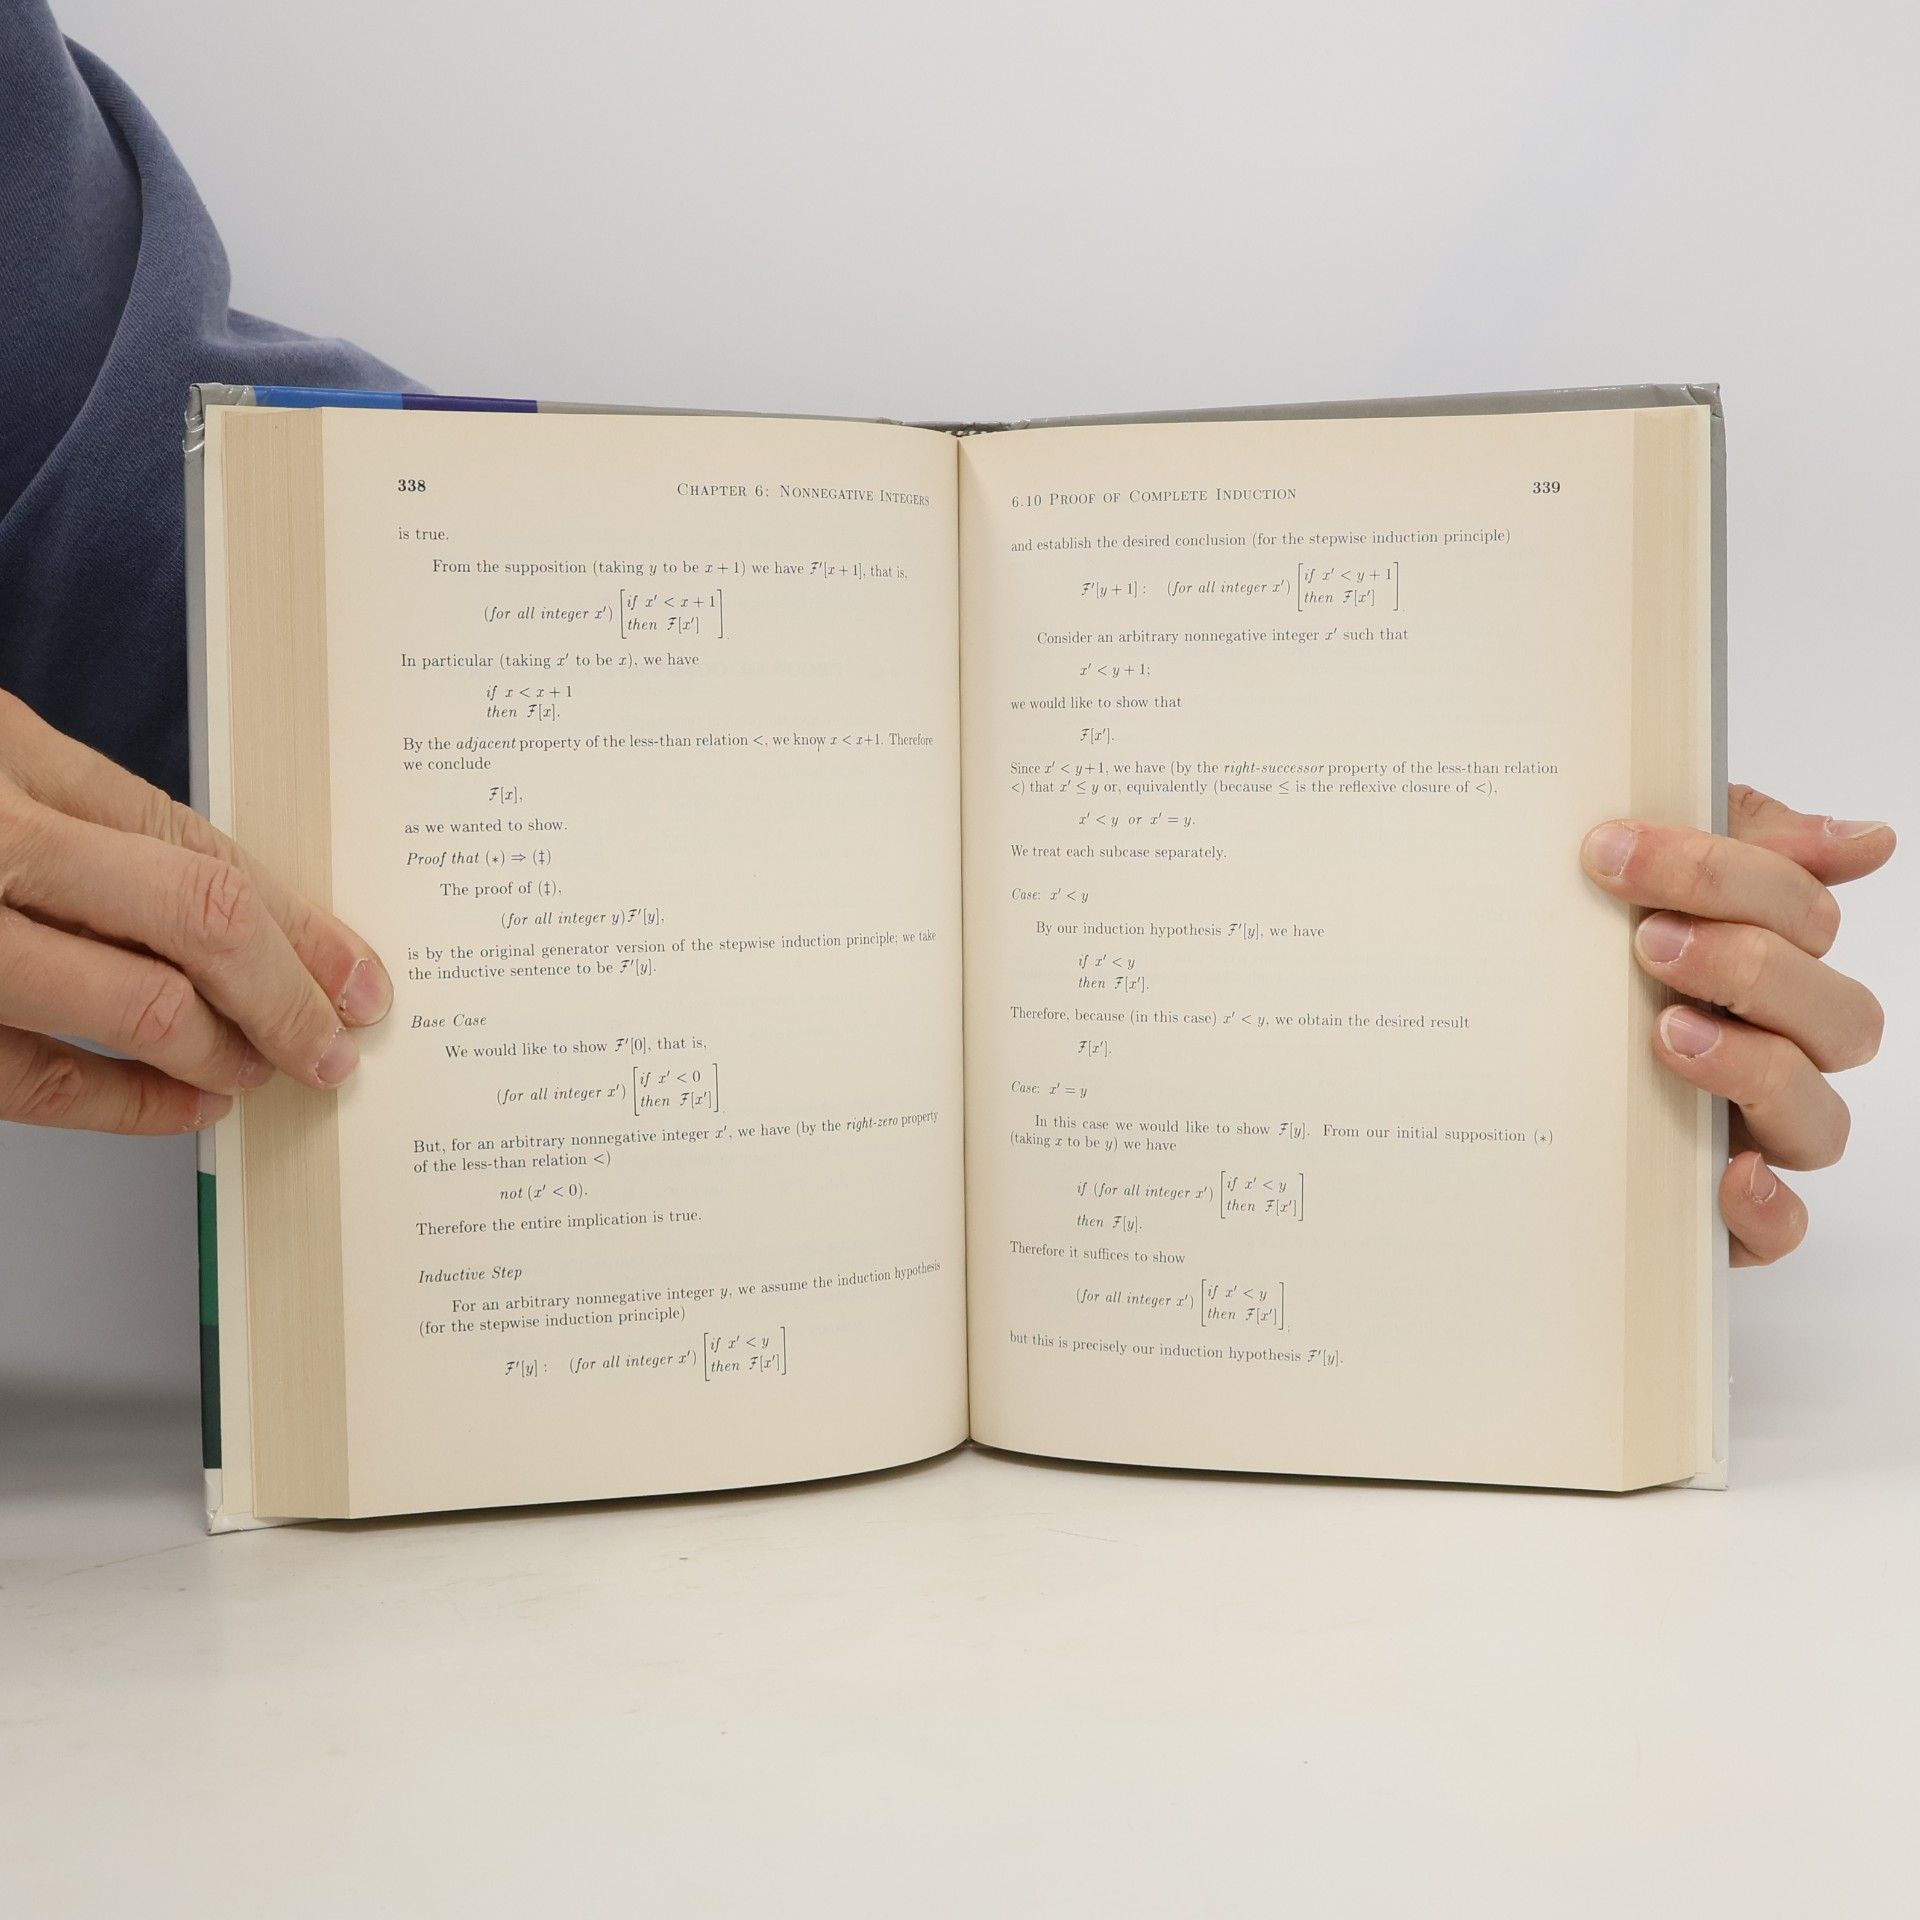 338
CHAPTER 6: NONNEGATIVE INTEGERS
is true.
From the supposition (taking y to be x + 1) we have ℱ′[x + 1], that is,
(for all integer x′) [if x′ < x + 1
then ℱ[x′]].
In particular (taking x′ to be x), we have
if x < x + 1
then ℱ[x].
By the adjacent property of the less-than relation <, we know x < x+1. Therefore
we conclude
ℱ[x],
as we wanted to show.
Proof that (∗) ⇒ (‡)
The proof of (‡),
(for all integer y)ℱ′[y],
is by the original generator version of the stepwise induction principle; we take
the inductive sentence to be ℱ′[y].
Base Case
We would like to show ℱ′[0], that is,
(for all integer x′) [if x′ < 0
then ℱ[x′]].
But, for an arbitrary nonnegative integer x′, we have (by the right-zero property
of the less-than relation <)
not (x′ < 0).
Therefore the entire implication is true.
Inductive Step
For an arbitrary nonnegative integer y, we assume the induction hypothesis
(for the stepwise induction principle)
ℱ′[y] : (for all integer x′) [if x′ < y
then ℱ[x′]]
6.10 PROOF OF COMPLETE INDUCTION
339
and establish the desired conclusion (for the stepwise induction principle)
ℱ′[y + 1] : (for all integer x′) [if x′ < y + 1
then ℱ[x′]].
Consider an arbitrary nonnegative integer x′ such that
x′ < y + 1;
we would like to show that
ℱ[x′].
Since x′ < y+1, we have (by the right-successor property of the less-than relation
<) that x′ ≤ y or, equivalently (because ≤ is the reflexive closure of <),
x′ < y or x′ = y.
We treat each subcase separately.
Case: x′ < y
By our induction hypothesis ℱ′[y], we have
if x′ < y
then ℱ[x′].
Therefore, because (in this case) x′ < y, we obtain the desired result
ℱ[x′].
Case: x′ = y
In this case we would like to show ℱ[y]. From our initial supposition (∗)
(taking x to be y) we have
if (for all integer x′) [if x′ < y
then ℱ[x′]]
then ℱ[y].
Therefore it suffices to show
(for all integer x′) [if x′ < y
then ℱ[x′]];
but this is precisely our induction hypothesis ℱ′[y].